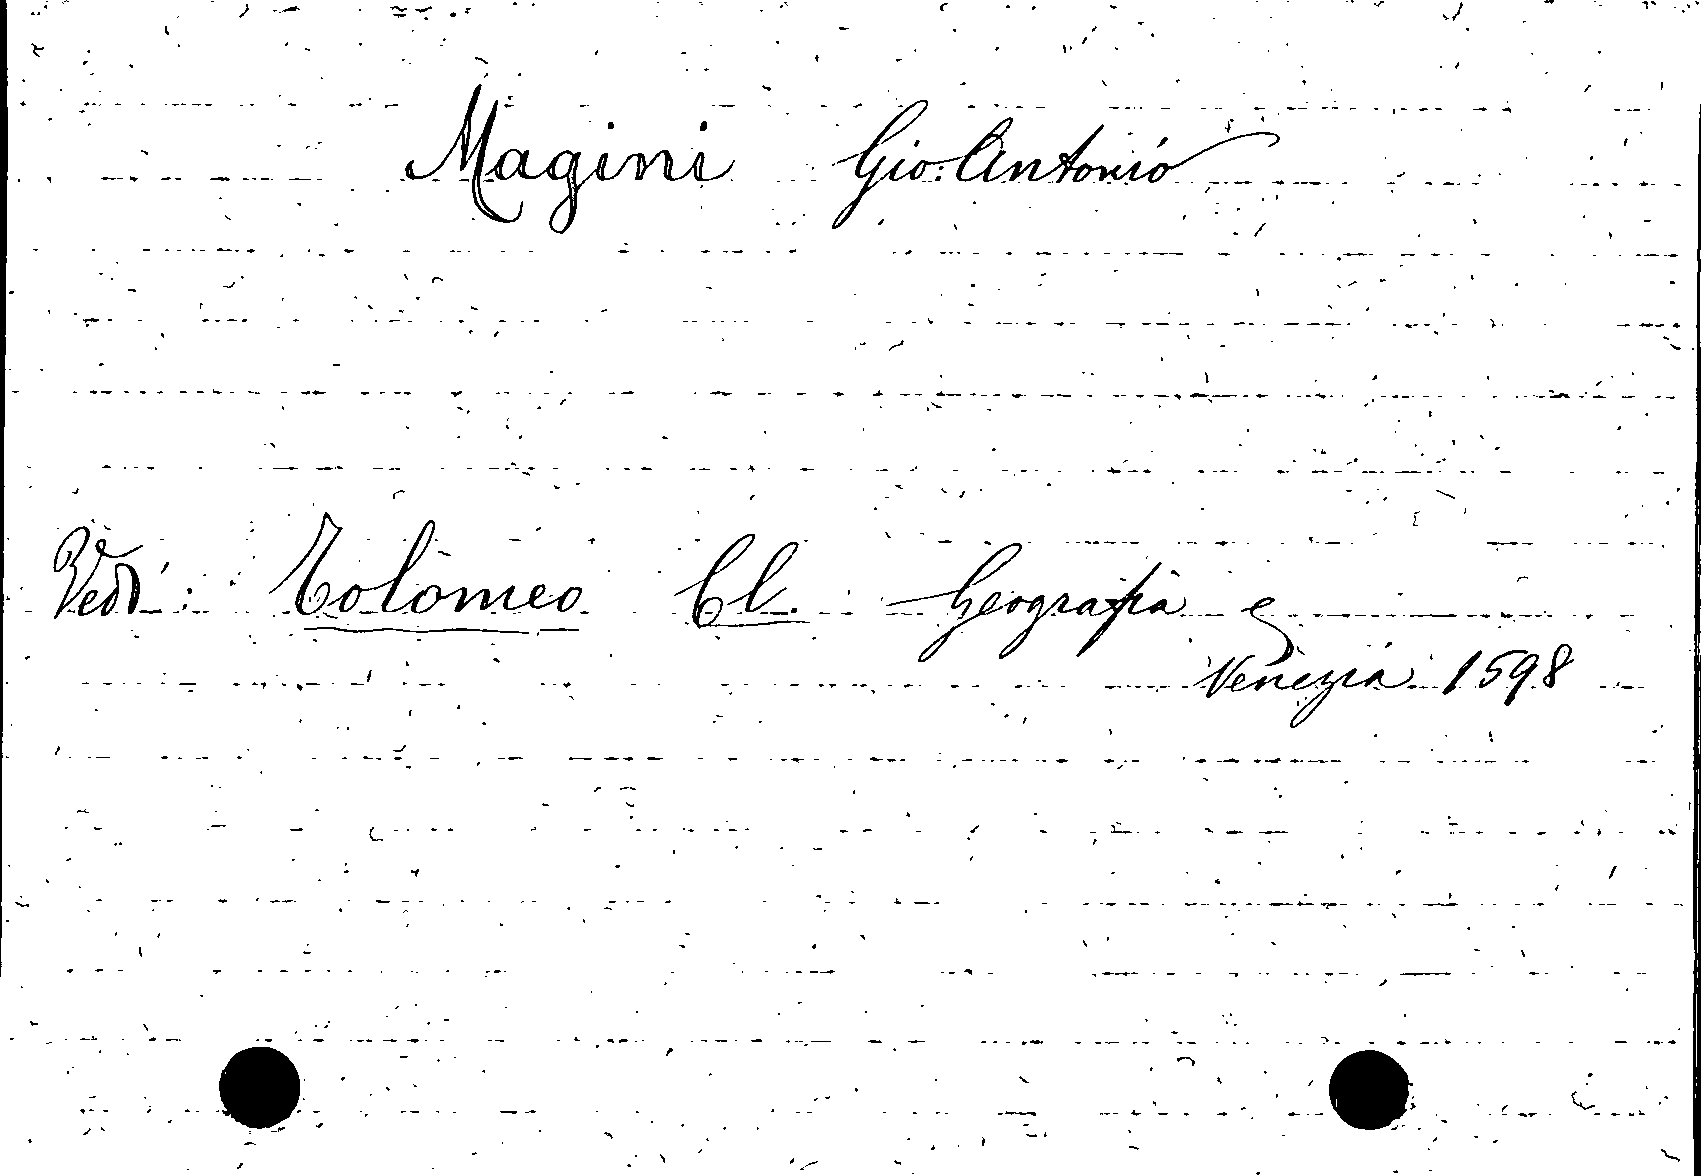 Magini Gio: Antonio
Vedi: Tolomeo Cl. Geografia e
Venezia 1598